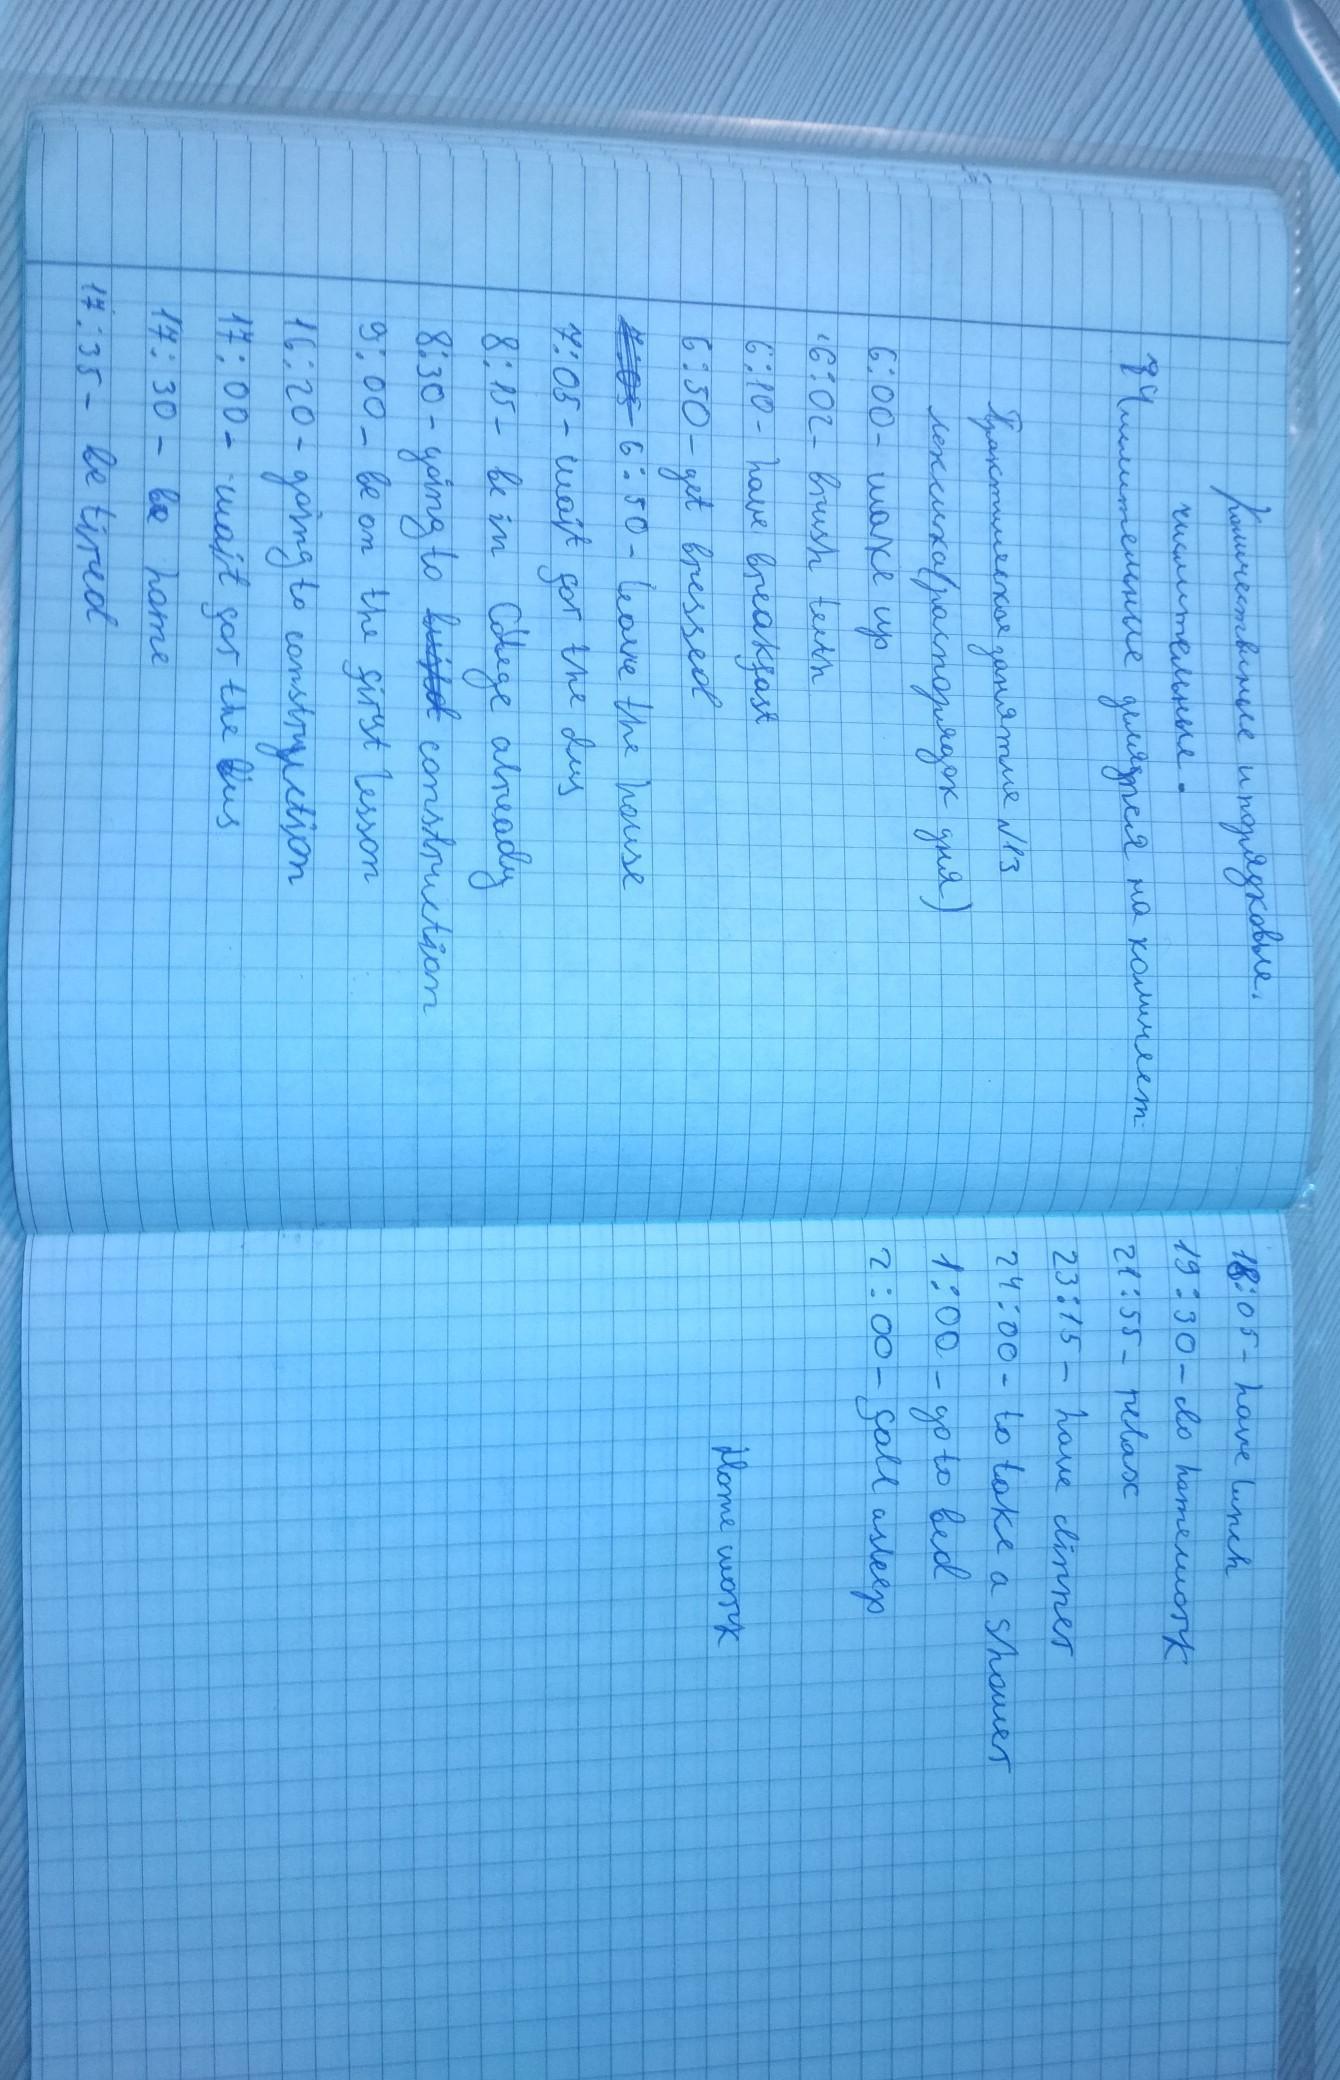 Количественные и порядковые.
числительные.
Числительные делятся на количест-
Практическое занятие №13
лексика(распорядок дня)
6:00 - wake up
6:02 - brush teeth
6:10 - have breakfast
6:30 - get bressed
6:50 - leave the house
7:05 - wait for the bus
8:15 - be in College already
8:30 - going to construction
9:00 - be on the first lesson
16:20 - going to construction
17:00 - wait for the bus
17:30 - be home
17:35 - be tired
18:05 - have lunch
19:30 - do homework
21:55 - relax
23:15 - have dinner
24:00 - to take a shower
1:00 - go to bed
2:00 - fall asleep
Home work